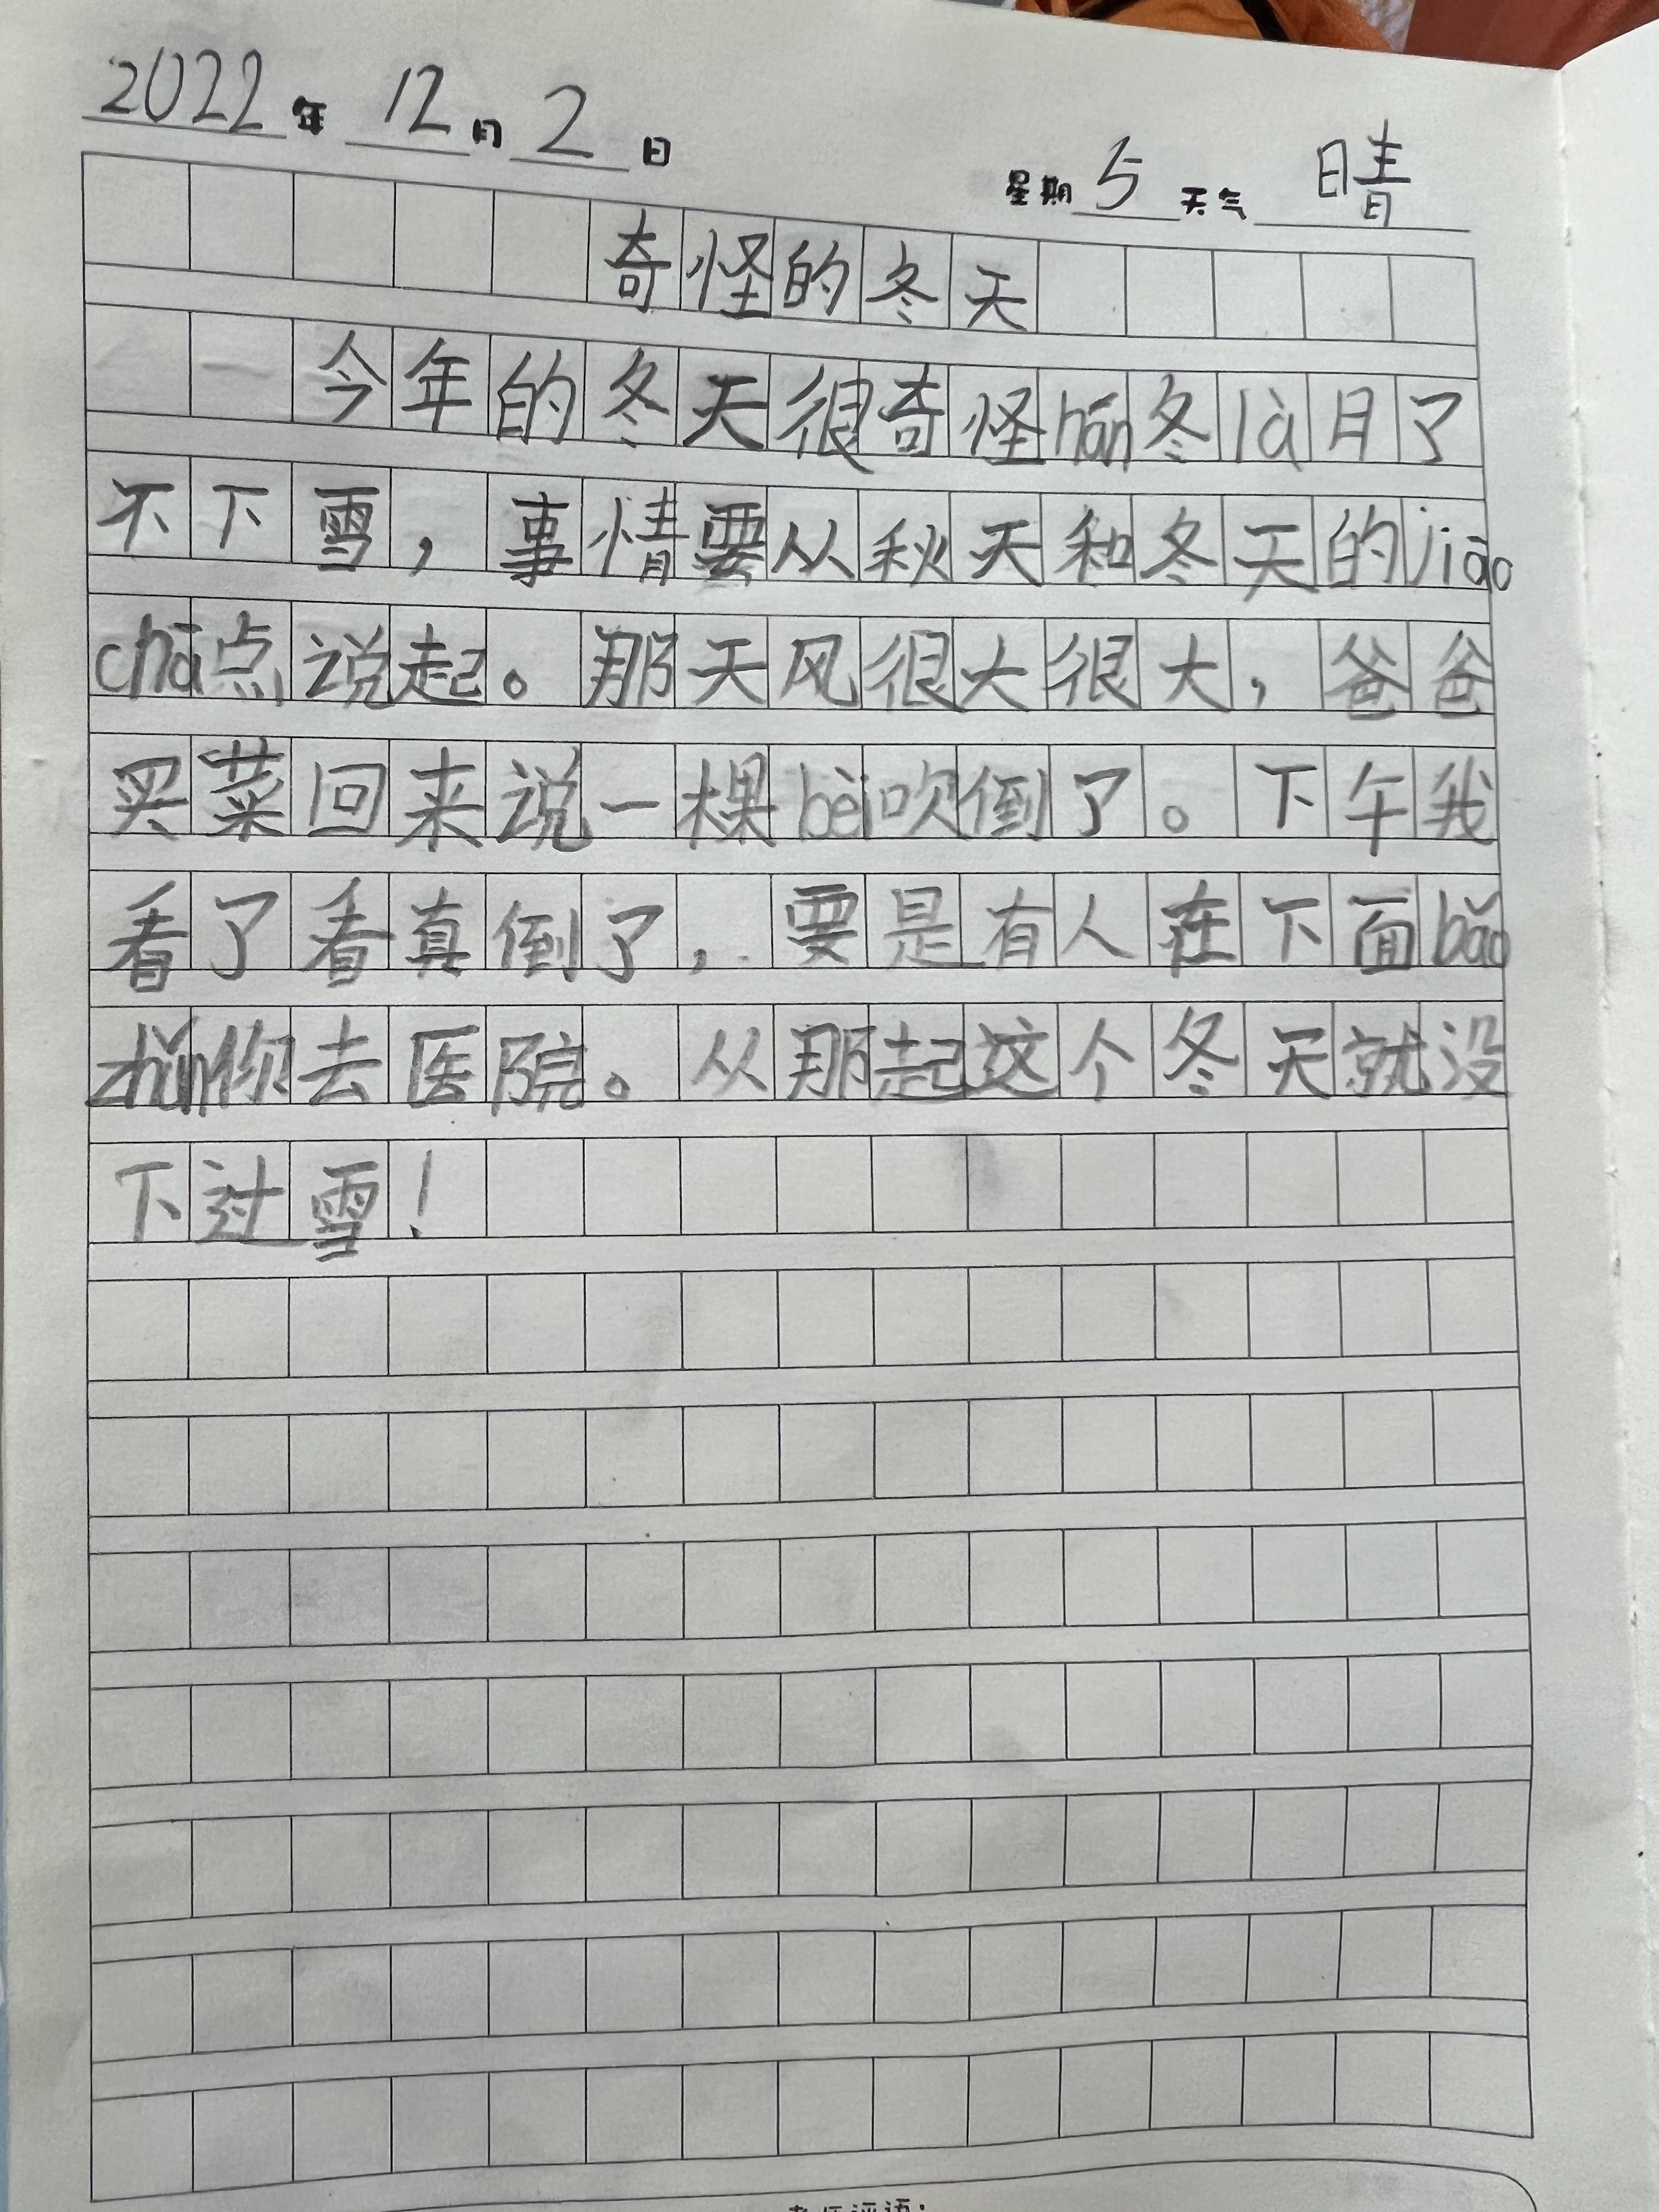 2022年12月2日
星期5天气晴
奇怪的冬天
今年的冬天很奇怪hán冬là月了
不下雪，事情要从秋天和冬天的jiāo
chā点说起。那天风很大很大，爸爸
买菜回来说一棵bèi吹倒了。下午我
看了看真倒了，要是有人在下面bǎo
zhǔn你去医院。从那起这个冬天就没
下过雪！